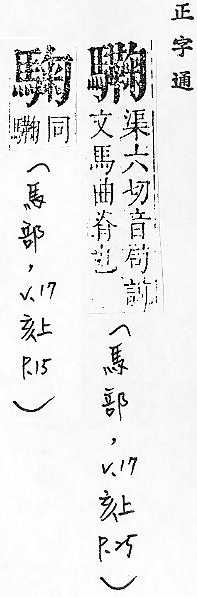 正字通
驧
渠六切音說
文馬曲脊也
(馬部,v.17亥上P.25)
同
驧
(馬部,v.17亥上P.15)